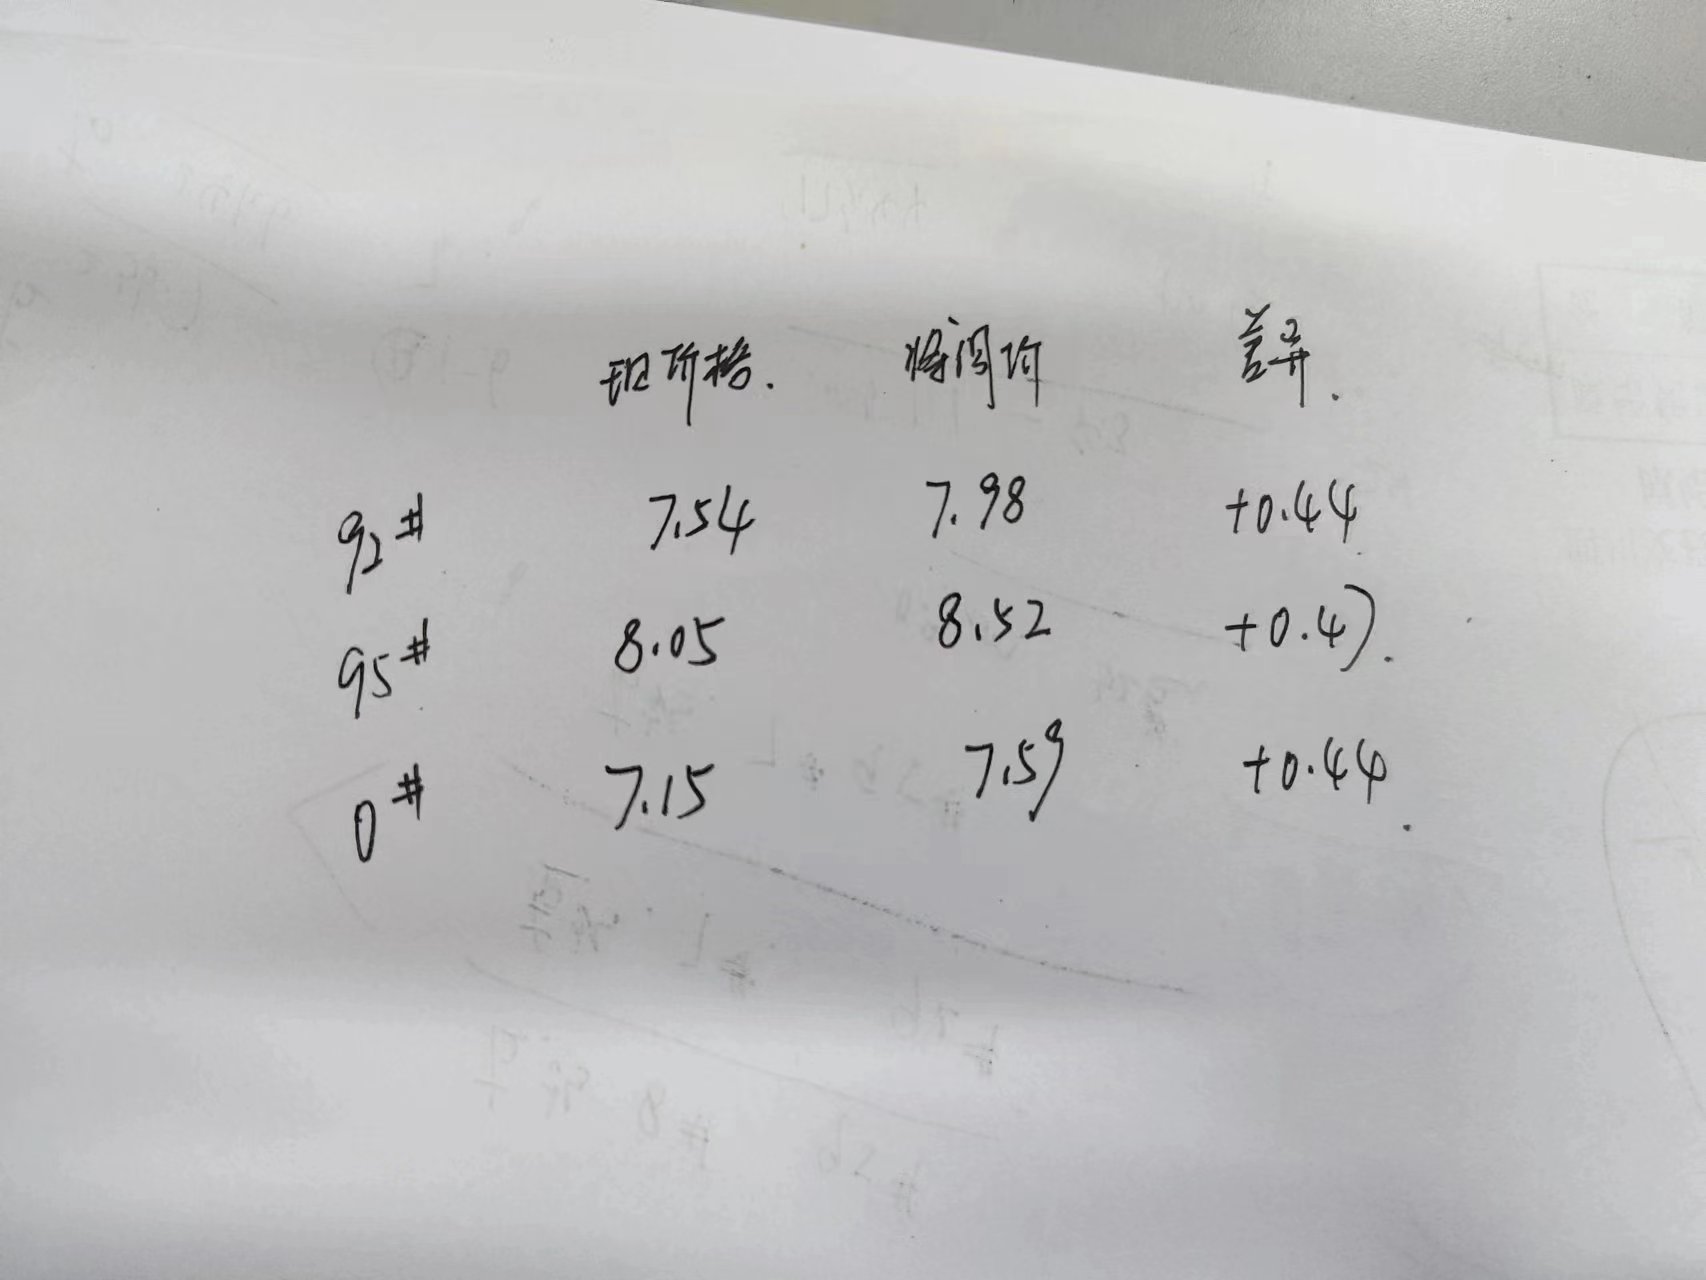 现价格. 将调价 差异.
92# 7.54 7.98 +0.44
95# 8.05 8.52 +0.47.
0# 7.15 7.59 +0.44.